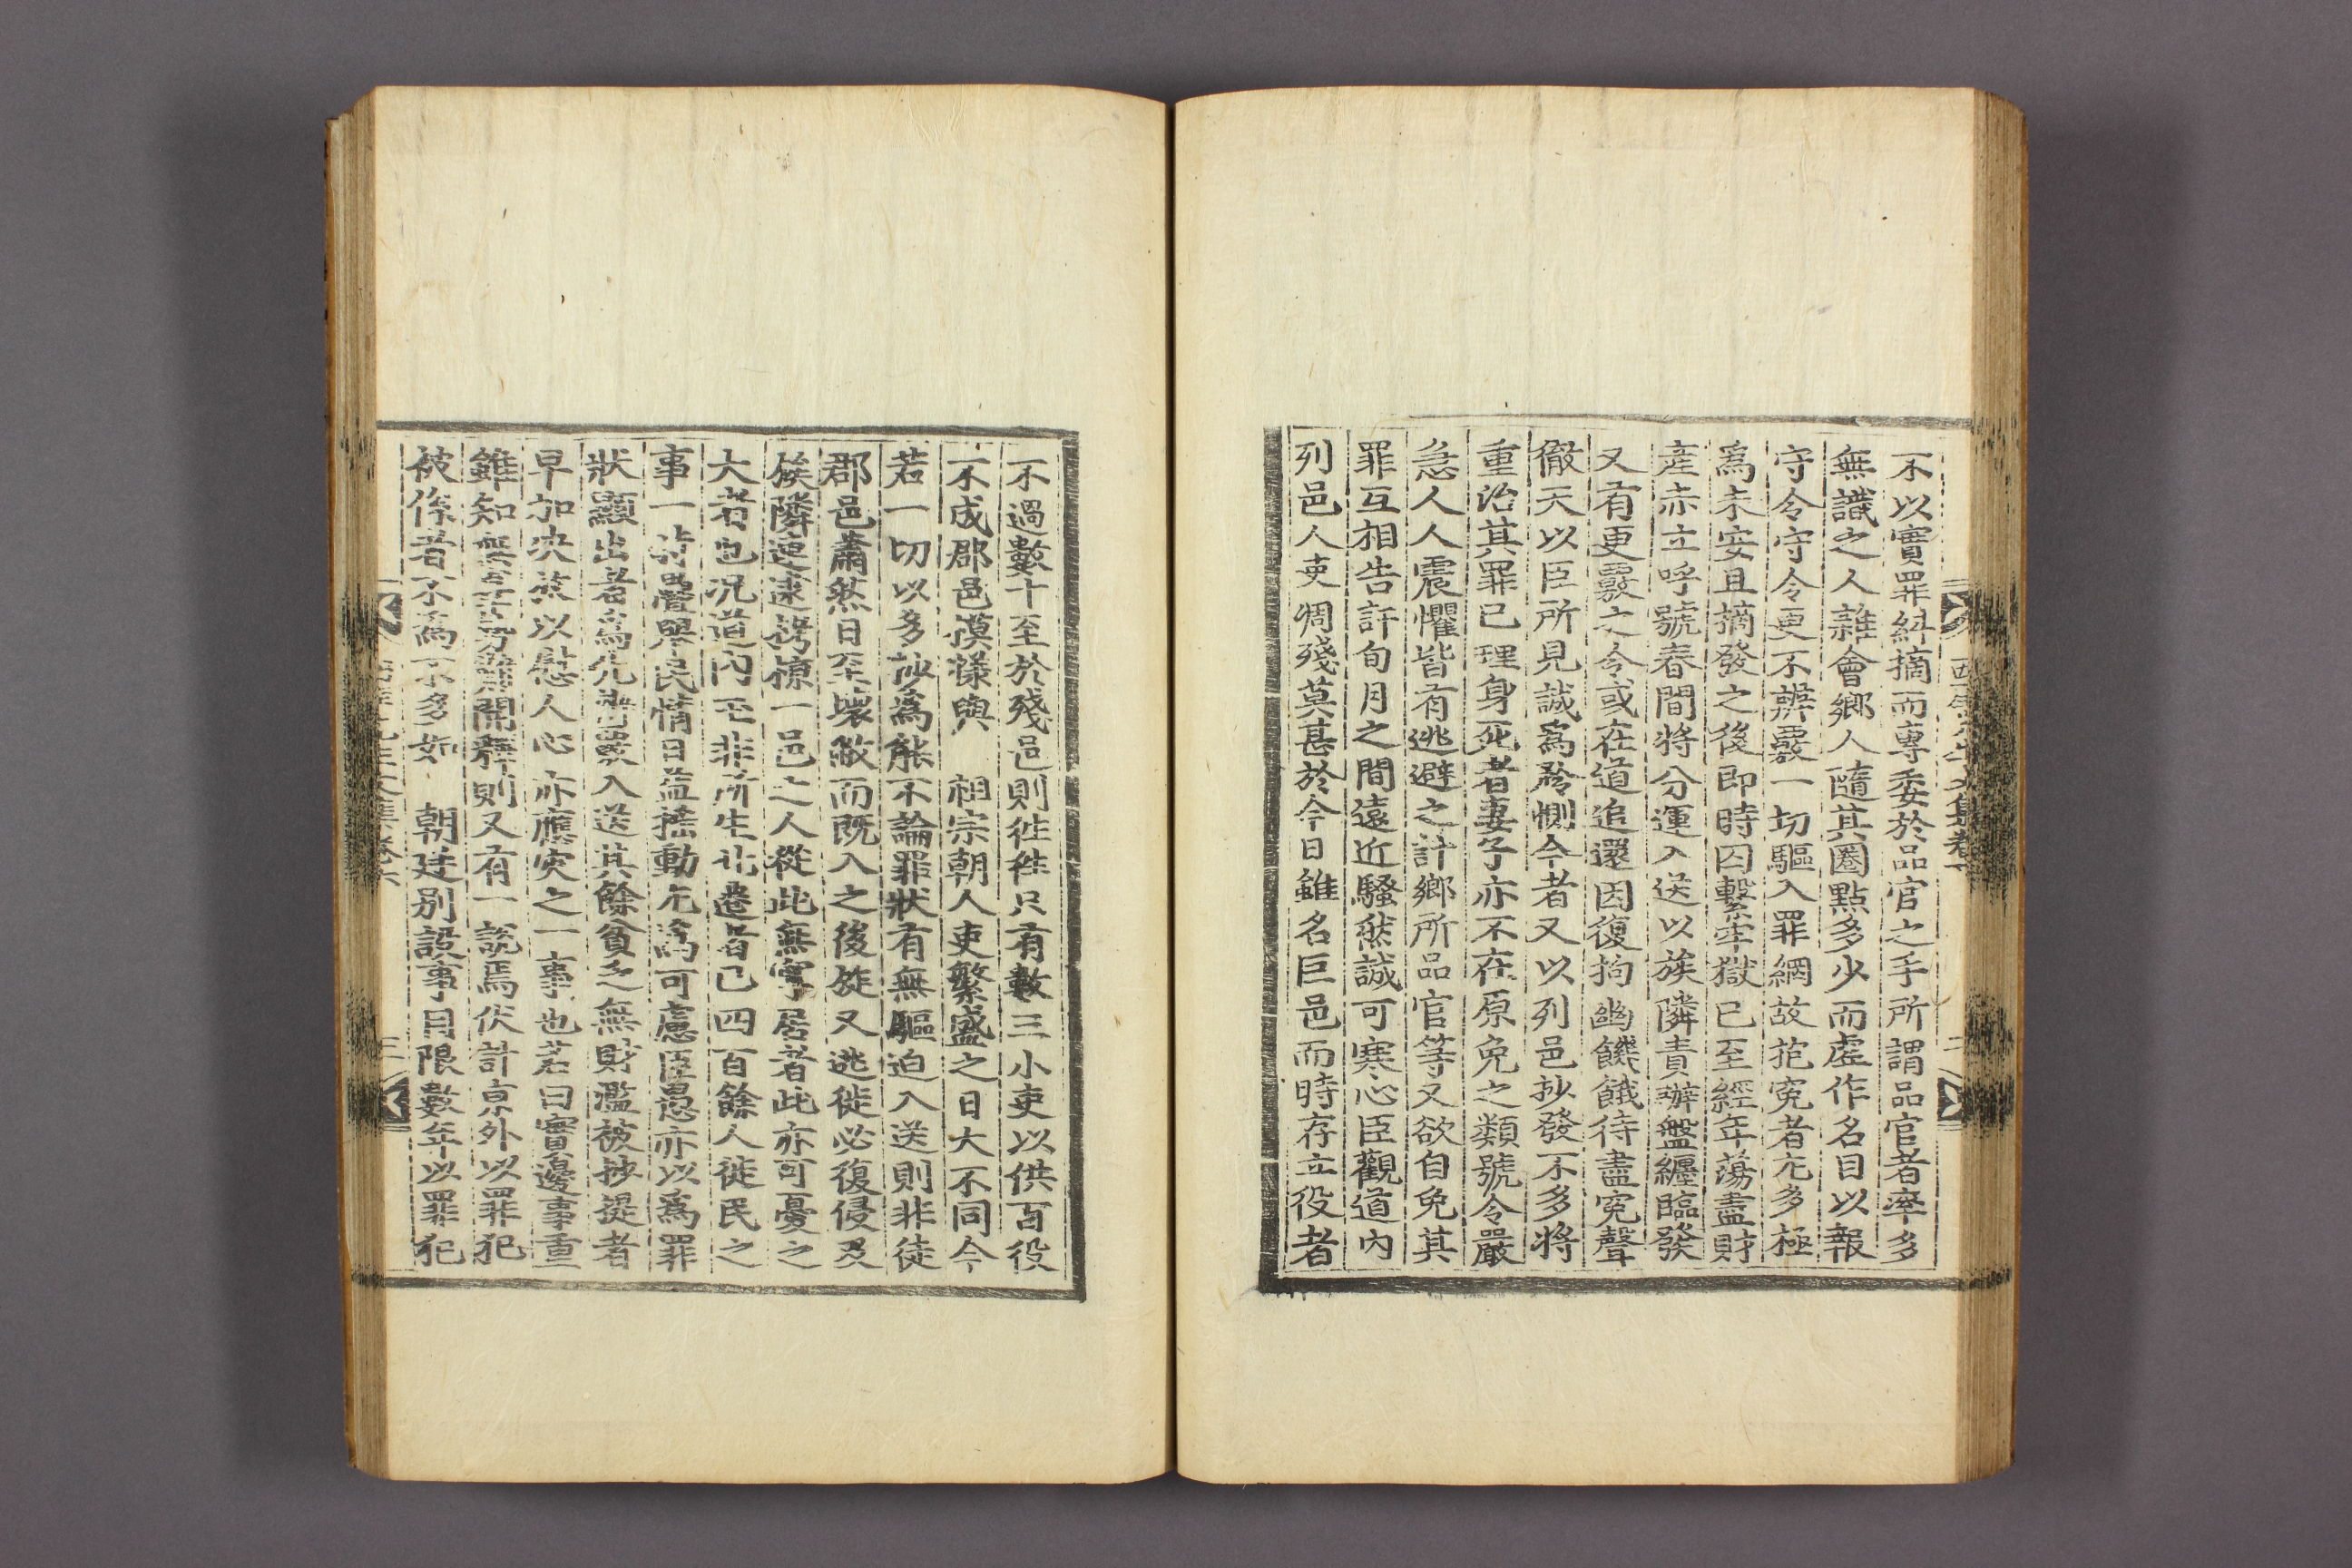 不以實罪糾摘而專委於品官之手所謂品官者率多
無識之人雜會鄕人隨其圈點多少而虛作名目以報
守令守令更不辨覈一切驅入罪網故抱冤者尤多極
爲未安且摘發之後即時囚繫牢獄已至經年蕩盡財
產赤立呼號春間將分運入送以族隣責辦盤纏臨發
又有更覈之令或在道追還因復拘幽饑餓待盡冤聲
徹天以臣所見誠爲矜惻今者又以列邑抄發不多將
重治其罪已理身死者妻子亦不在原免之類號令嚴
急人人震懼皆有逃避之計鄕所品官等又欲自免其
罪互相告訐旬月之間遠近騷然誠可寒心臣觀道內
列邑人吏凋殘莫甚於今日雖名巨邑而時存立役者
不過數十至於殘邑則徃徃只有數三小吏以供百役
不成郡邑摸㨾與 祖宗朝人吏繁盛之日大不同今
若一切以多抄爲能不論罪狀有無驅迫入送則非徒
郡邑蕭然日至壞敝而旣入之後旋又逃徙必復侵及
族隣逮逮搒掠一邑之人從此無寧居者此亦可憂之
大者也况道內 非所生 已四百餘人徙民之
事一時疊舉民情日益搖動尤爲可慮臣愚亦以爲罪
狀顯出者爲先 覈入送其餘貧乏無財濫被抄提者
早加決 以慰人心亦應灾之一事也若曰實邊事重
雖知無 開釋則又有一說焉伏計京外以罪犯
被係者不爲不多如 朝廷別設事目限數年以罪犯